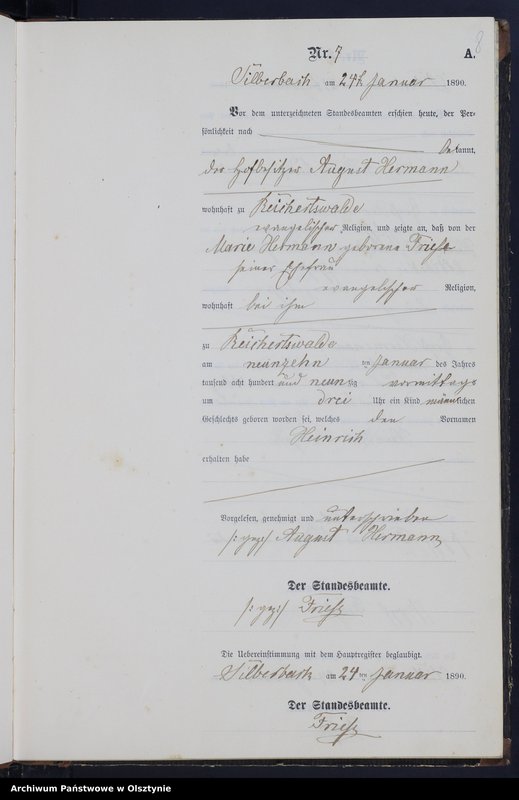 8
Nr. 7
A.
Silberbach am 24t. Januar 1890.
Vor dem unterzeichneten Standesbeamten erschien heute, der Per-
sönlichkeit nach
bekannt,
der Hofbesitzer August Hermann
wohnhaft zu Reichertswalde
evangelischer Religion, und zeigte an, daß von der
Marie Hermann geborene Friese
seiner Ehefrau
evangelischer Religion,
wohnhaft bei ihm
zu Reichertswalde
am neunzehn ten Januar des Jahres
tausend acht hundert und neunzig vormittags
um drei Uhr ein Kind männlichen
Geschlechts geboren worden sei, welches den Vornamen
Heinrich
erhalten habe
Vorgelesen, genehmigt und unterschrieben
/:gez:/ August Hermann
Der Standesbeamte.
/:gez:/ Friese
Die Uebereinstimmung mit dem Hauptregister beglaubigt.
Silberbach am 24 ten Januar 1890.
Der Standesbeamte.
Friese
Archiwum Państwowe w Olsztynie